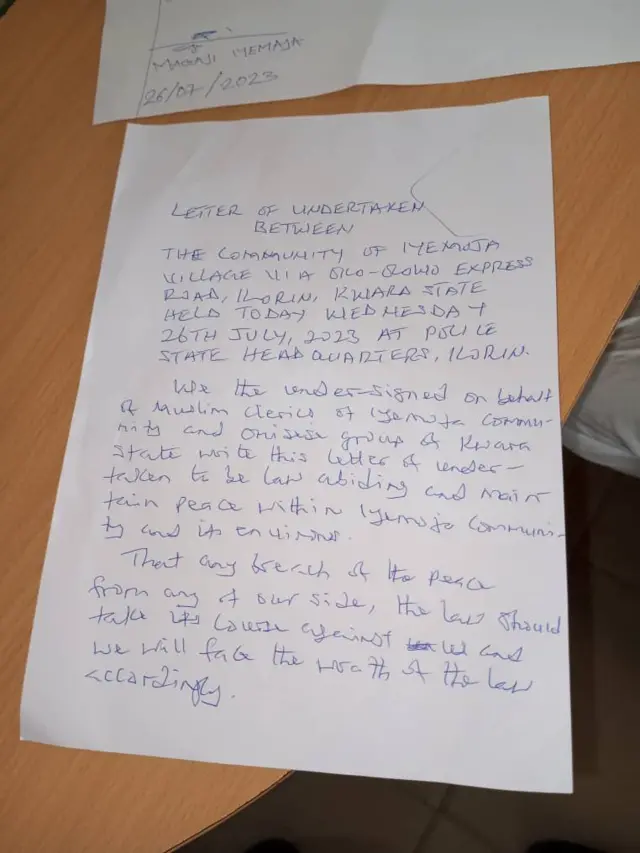 MAGAJI IYEMOJA
26/07/2023
LETTER OF UNDERTAKEN
BETWEEN
THE COMMUNITY OF IYEMOJA
VILLAGE VIA OKO-OLOWO EXPRESS
ROAD, ILORIN, KWARA STATE
HELD TODAY WEDNESDAY
26TH JULY, 2023 AT POLICE
STATE HEADQUARTERS, ILORIN.
We the under-signed on behalf
of Muslim clerics of Iyemoja commu-
nity and onisese group of Kwara
State write this letter of under-
taken to be law abiding and main
tain peace within Iyemoja communi-
ty and its environs.
That any breach of the peace
from any of our side, the law should
take its course against us and
we will face the wrath of the law
accordingly.